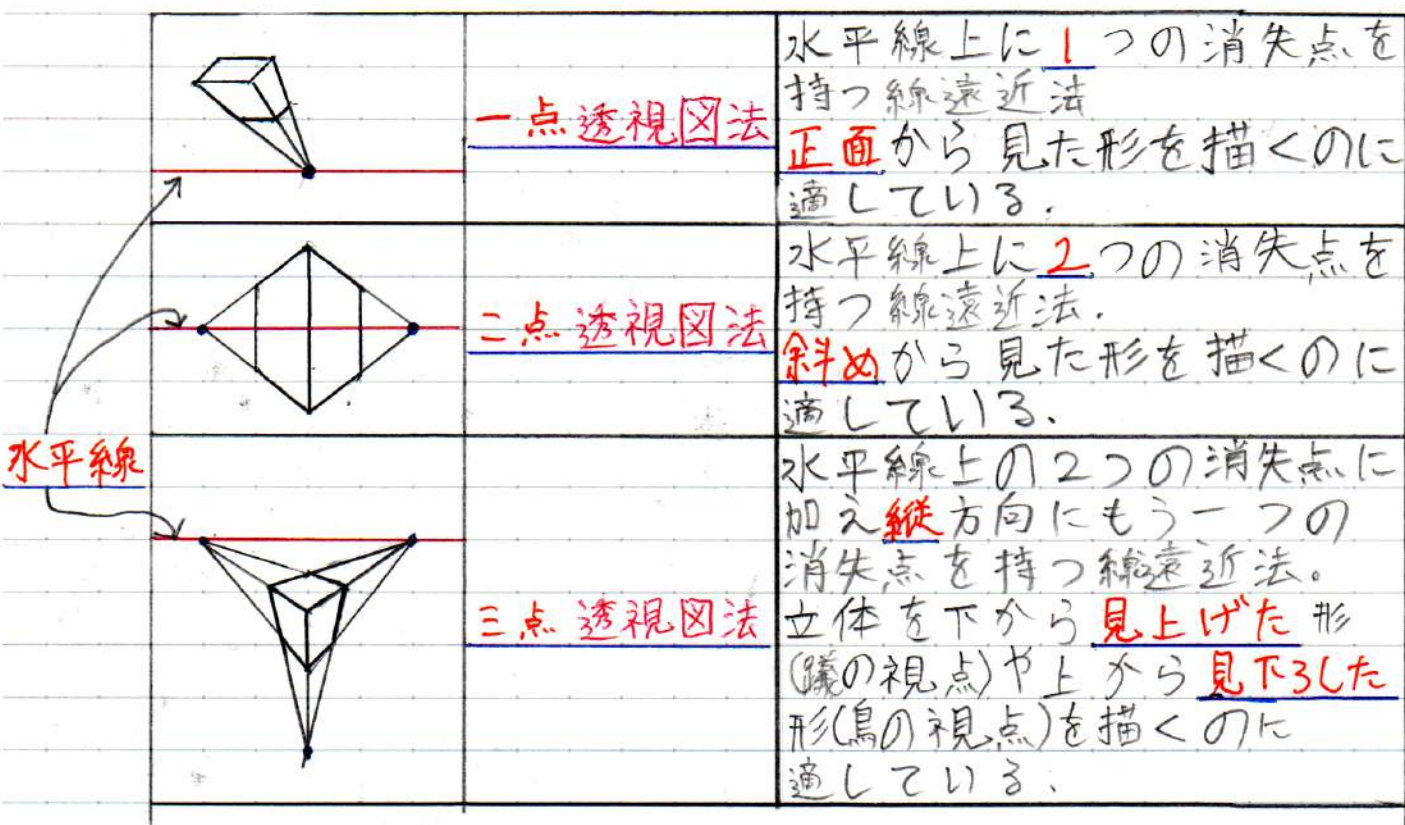 一点透視図法
水平線上に1つの消失点を
持つ線遠近法
正面から見た形を描くのに
適している.
二点透視図法
水平線上に2つの消失点を
持つ線遠近法.
斜めから見た形を描くのに
適している.
水平線
三点透視図法
水平線上の2つの消失点に
加え縦方向にもう一つの
消失点を持つ線遠近法。
立体を下から見上げた形
(蟻の視点)や上から見下ろした
形(鳥の視点)を描くのに
適している.